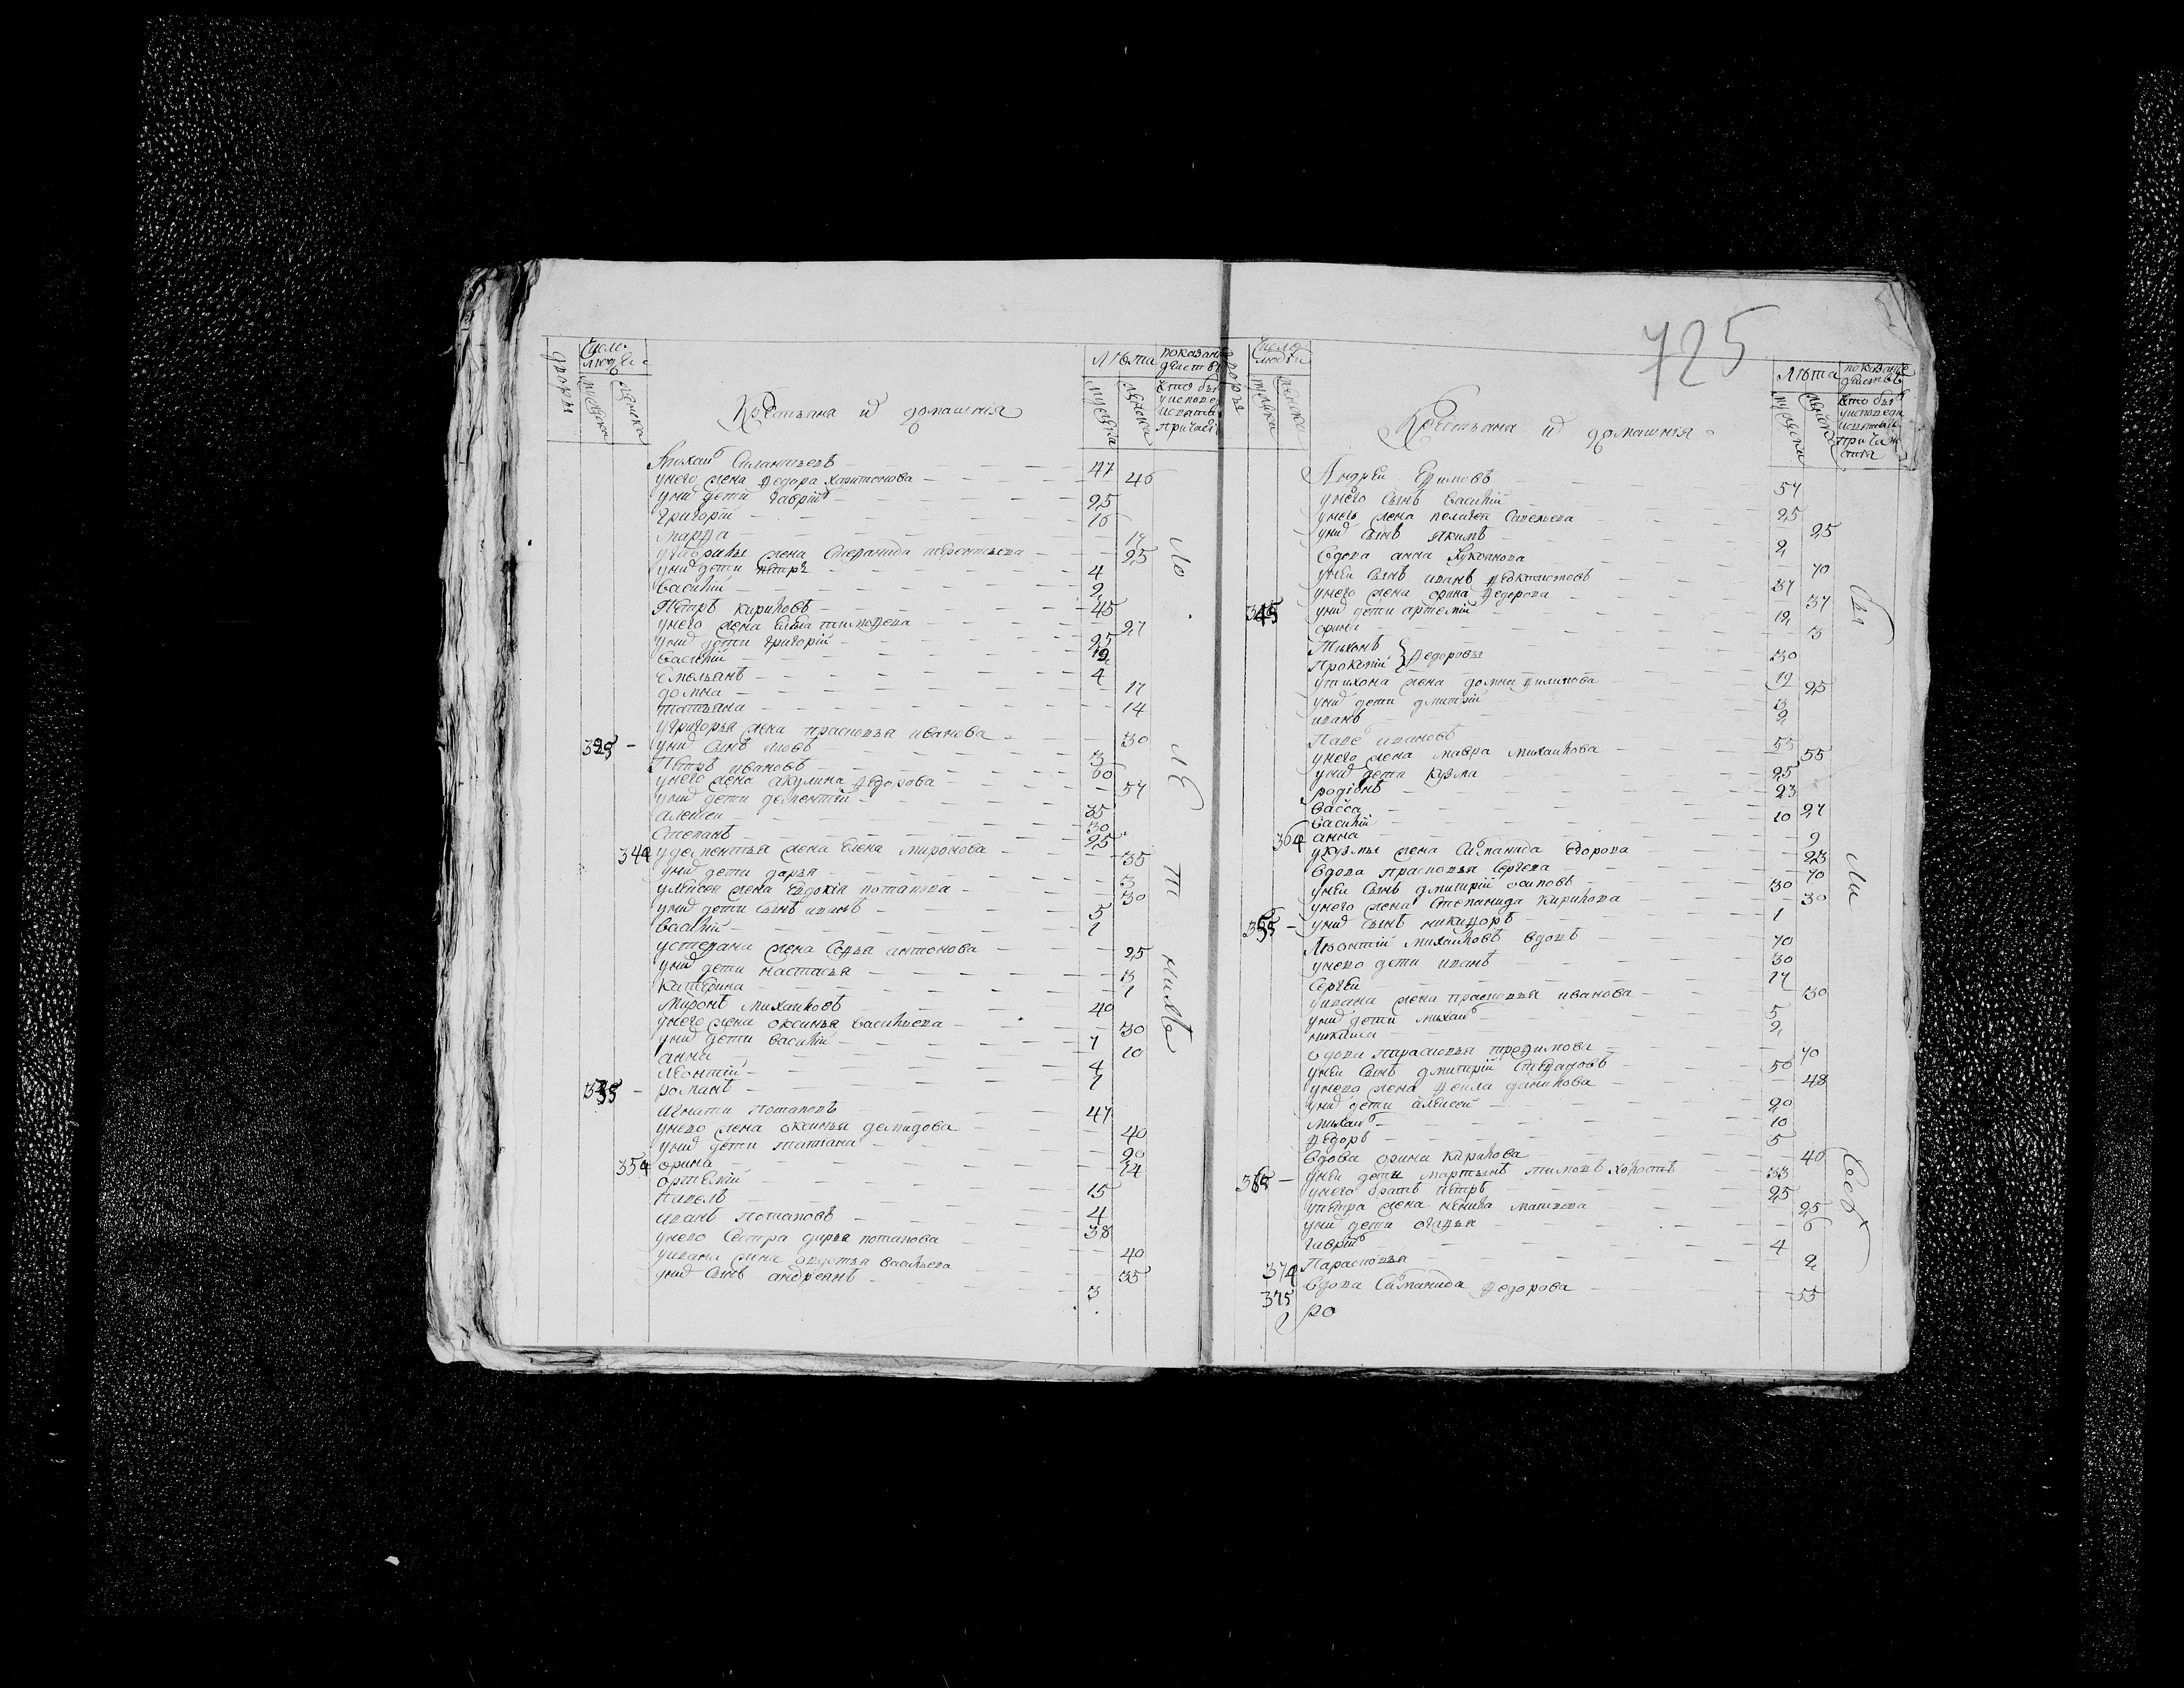 725
дворы
Число людей
мужеска
женска
Крестьяна и домашнiя
Лѣта
мужеска
женска
показан действ
кто был у исповеди и святаго причаст
Михаил Силантьевъ 47
у него жена Федора Харитонова 46
у них дети Гаврiил 25
Григорiй 16
Марфа 17
у Гаврилы жена Степанида Терентьева 25
у них дети петръ 4
Василiй 2
Петръ кириловъ 45
у него жена Елена тимофеева 27
у них дети григорiй 25
Василiй 12
емельянъ 4
домна 17
татьяна 14
у григорья жена прасковья иванова 30
325 у них сынъ 3
Петръ ивановъ 60
у него жена акулина Федорова 57
у них дети дементiй 35
алексеи 30
Степанъ 25
344 у дементья жена Елена миронова 35
у них дети дарья 3
у алексея жена Евдокiя потапова 30
у них дети сынъ иванъ 5
Василiй 1
у степана жена Софья антонова 25
у них дети настасья 3
Катерина 1
Миронъ михаиловъ 40
у него жена оксинья васильева 30
у них дети василiй 7
анна 10
леонтiй 4
335 романъ 1
игнати потаповъ 47
у него жена оксинья демидова 40
у них дети татиана 20
354 орина 14
ортемiй 15
павелъ 4
иванъ потаповъ 38
у него сестра дарья потапова 40
у ивана жена васильева 35
у них сынъ андреянъ 3
дворы
Число людей
мужеска
женска
Крестьяна и домашнiя
Лѣта
мужеска
женска
показание действ
кто был у исповеди и святаго причаст
Андрей Ефимовъ 57
у него сынъ василiй 25
у него жена пелагея савельева 25
у них сынъ якимъ 2
вдова анна лукоянова 70
у неи сынъ иванъ 37
у него жена орина федорова 37
345 у них дети артемiй 12
орина 13
Тихонъ 30
Прокопiй } Федоровы 19
у тихона жена домна филипова 25
у них дети дмитрiй 3
иванъ 2
Павел ивановъ 55
у него жена мавра михаилова 55
у них дети кузма 25
родiонъ 23
васса 27
василiй 10
364 анна 9
у кузмы жена Соломанида Егорова 23
вдова прасковья сергева 70
у неи сынъ дмитрiй осиповъ 30
у него жена Степанида кирилова 30
355 у них сынъ никифоръ 1
Леонтiй михаиловъ вдовъ 70
у нево дети иванъ 30
Сергеи 17
у ивана жена прасковья иванова 30
у них дети михаил 5
никита 2
вдова парасковья трефимова 70
у неи сынъ дмитрiй 50
у нево жена Фекла данилова 48
у них дети алексеи 20
михаил 10
Федоръ 5
вдова орина кирилова 40
365 у неи дети мартынъ тимовъ холостъ 33
у него братъ петръ 25
у петра жена ненила матвева 25
у них дети огафья 6
гаврiил 4
374 Парасковья 2
375 вдова Соломанида Федорова 55
ро